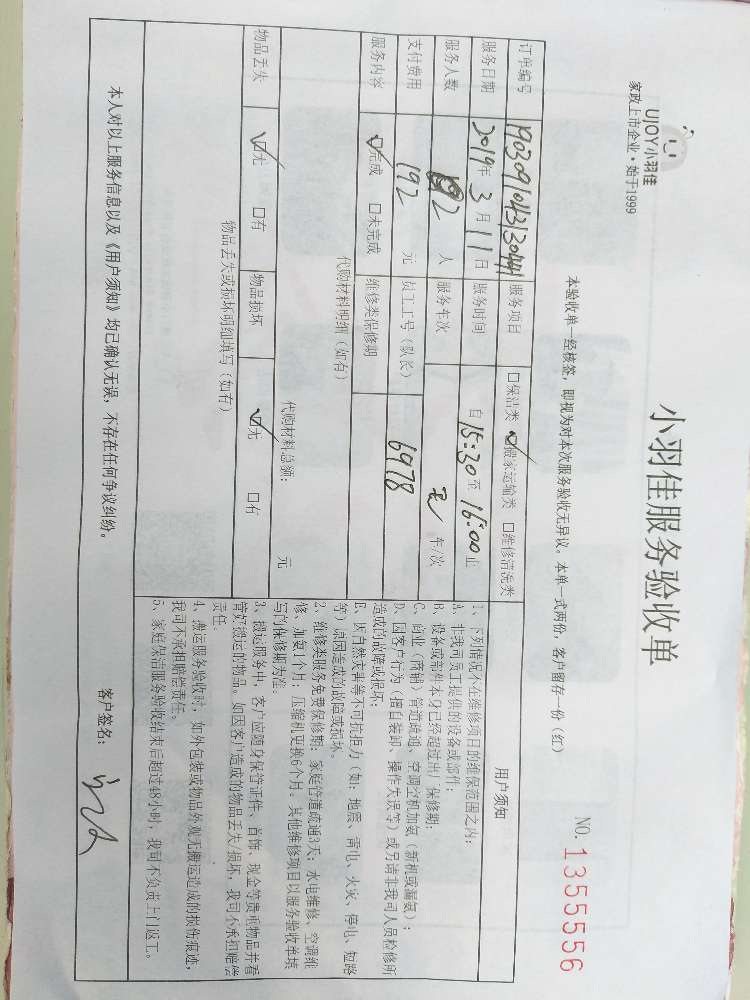 UJOY小羽佳
家政上市企业·始于1999
小羽佳服务验收单
NO. 1355556
本验收单一经核签，即视为对本次服务验收无异议。本单一式两份，客户留存一份（红）
订单编号 服务项目 □保洁类 ☑搬家运输类 □维修清洗类
服务日期 2019年3月11日 服务时间 自15:30至16:00止
服务人数 2人 服务车次 车/次
支付费用 192元 员工工号（队长） 6978
服务内容 ☑完成 □未完成 维修类保修期
代购材料明细（如有）
代购材料总额： 元
物品丢失 ☑无 □有 物品损坏 ☑无 □有
物品丢失或损坏明细填写（如有）
用户须知
1、下列情况不在维修项目的维保范围之内：
A、非我司员工提供的设备或部件；
B、设备或部件本身已经超过出厂保修期；
C、商业（商铺）管道疏通、空调空机加氨（新机或漏氨）；
D、因客户行为（擅自装卸、操作失误等）或另请非我司人员检修所
造成的故障或损坏；
E、因自然灾害等不可抗拒力（如：地震、雷电、火灾、停电、短路
等）原因造成的故障或损坏。
2、维修类服务免费保修期：家庭管道疏通3天；水电维修、空调维
修、加氨1个月；压缩机更换6个月。其他维修项目以服务验收单填
写的保修期为准。
3、搬运服务中，客户应随身保管证件、首饰、现金等贵重物品并看
管好搬运的物品。如因客户造成的物品丢失/损坏，我司不承担赔偿
责任。
4、搬运服务验收时，如外包装或物品外观无搬运造成的损伤痕迹，
我司不承担赔偿责任。
5、家庭保洁服务验收结束后超过48小时，我司不负责上门返工。
本人对以上服务信息以及《用户须知》均已确认无误，不存在任何争议纠纷。
客户签名：